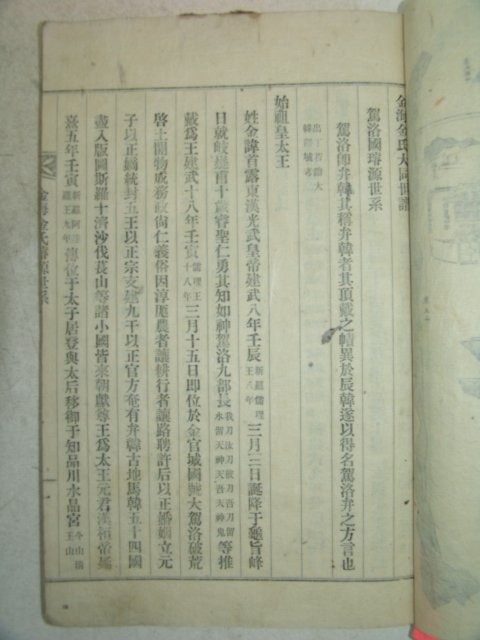 金海金氏大同世譜
駕洛國璿源世系
駕洛卽弁韓其稱弁韓者其頂戴之幘異於辰韓遂以得名駕洛弁之方言也
出丁若鏞大韓疆域考
始祖皇太王
姓金諱首露東漢光武皇帝建武八年壬辰新羅儒理王八年三月三日誕降于龜旨峰
日就岐嶷甫十歲睿聖仁勇其知如神駕洛九部長我刀汝刀彼刀吾刀留水留天神天吾天神鬼等推
戴爲王建武十八年壬寅儒理王十八年三月十五日卽位於金官城國號大駕洛破荒
啓土開物成務政尙仁義俗因淳厖農者讓耕行者讓路聘許后以正婚姻立元
子以正嫡統封五王以正宗支建九干以正官方奄有弁韓古地馬韓五十四國
盡入版圖斯羅十濟沙伐萇山等諸小國皆來朝獻尊王爲太王元君漢獻帝延
熹五年壬寅新羅阿達羅王九年傳位于太子居登與太后移御于知品川水晶宮
金海金氏璿源世系